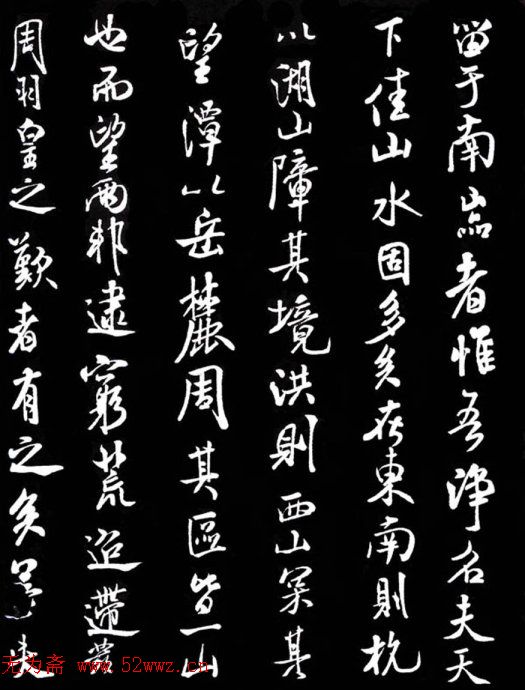 留于南嵓者惟吾淨名夫天
下佳山水固多矣在東南則杭
以湖山障其境洪則西山冪其
望潭以岳麓周其區皆一山
也而望兩邦逮窮荒迢遰
周羽皇之歎者有之矣
无为斋 www.52wwz.cn